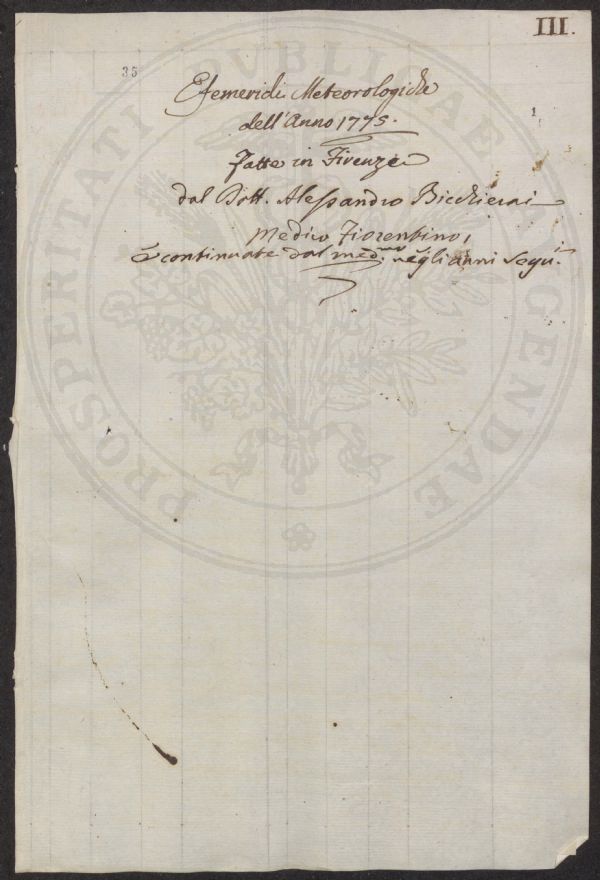 III.
35
Efemeridi Meteorologiche
dell'Anno 1775.
1
Fatte in Firenze
dal Dott. Alessandro Bicchierai
Medico Fiorentino,
e continuate dal med.mo negli anni segu.i
PROSPERITATI PUBLICAE AUGENDAE